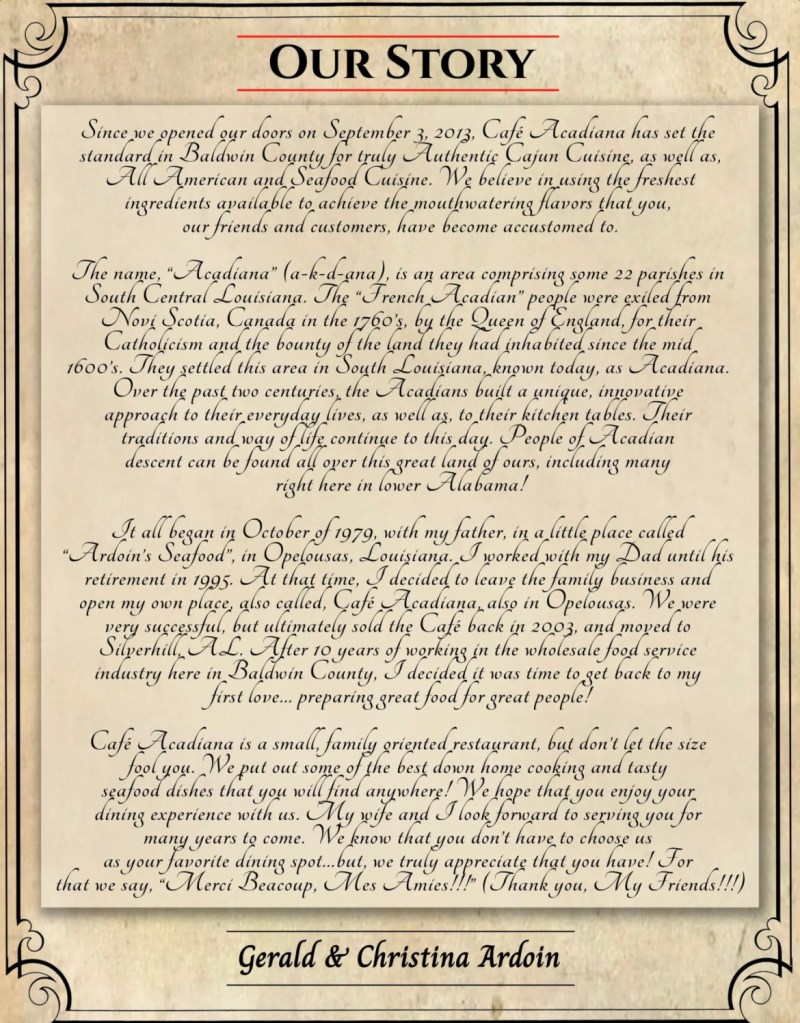 Our Story
Since we opened our doors on September 3, 2013, Café Acadiana has set the
standard in Baldwin County for truly Authentic Cajun Cuisine, as well as,
All American and Seafood Cuisine. We believe in using the freshest
ingredients available to achieve the mouthwatering flavors that you,
our friends and customers, have become accustomed to.
The name, “Acadiana” (a-k-d-ana), is an area comprising some 22 parishes in
South Central Louisiana. The “French Acadian” people were exiled from
Novi Scotia, Canada in the 1760's, by the Queen of England, for their
Catholicism and the bounty of the land they had inhabited since the mid
1600's. They settled this area in South Louisiana, known today, as Acadiana.
Over the past two centuries, the Acadians built a unique, innovative
approach to their everyday lives, as well as, to their kitchen tables. Their
traditions and way of life continue to this day. People of Acadian
descent can be found all over this great land of ours, including many
right here in lower Alabama!
It all began in October of 1979, with my father, in a little place called
“Ardoin's Seafood”, in Opelousas, Louisiana. I worked with my Dad until his
retirement in 1995. At that time, I decided to leave the family business and
open my own place, also called, Café Acadiana, also in Opelousas. We were
very successful, but ultimately sold the Café back in 2003, and moved to
Silverhill, AL. After 10 years of working in the wholesale food service
industry here in Baldwin County, I decided it was time to get back to my
first love... preparing great food for great people!
Café Acadiana is a small, family oriented restaurant, but don't let the size
fool you. We put out some of the best down home cooking and tasty
seafood dishes that you will find anywhere! We hope that you enjoy your
dining experience with us. My wife and I look forward to serving you for
many years to come. We know that you don't have to choose us
as your favorite dining spot...but, we truly appreciate that you have! For
that we say, “Merci Beacoup, Mes Amies!!!” (Thank you, My Friends!!!)
Gerald & Christina Ardoin